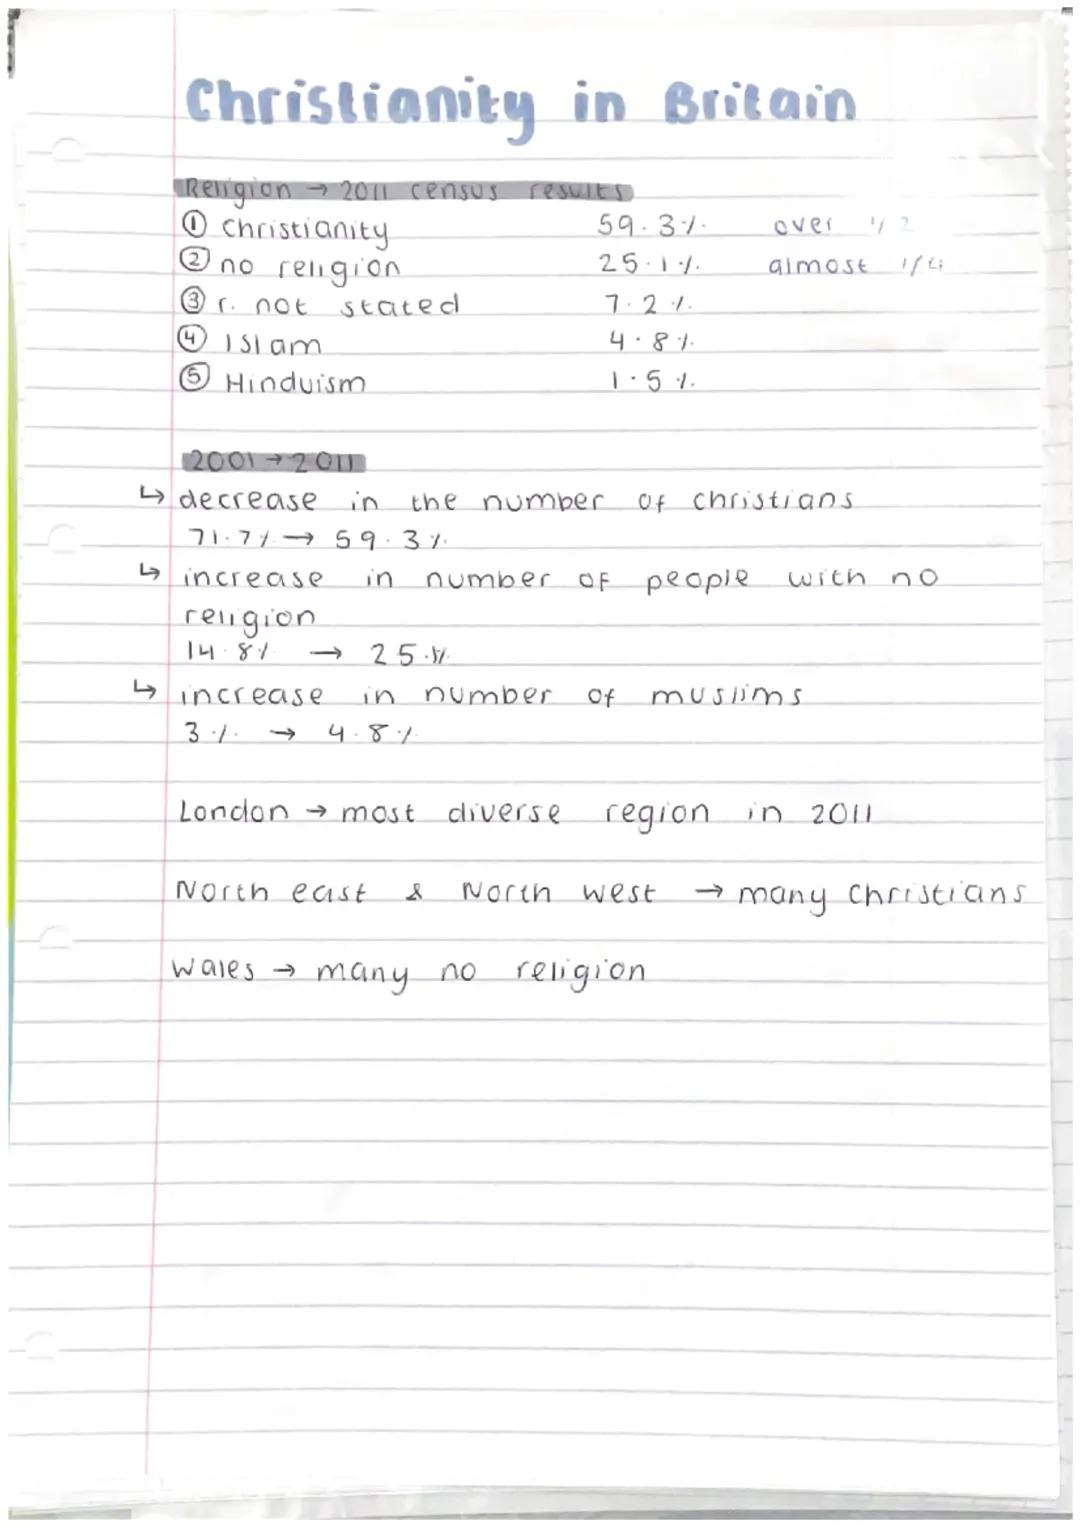 Christianity in Britain
Religion → 2011 census results
① Christianity 59.3% over 1/2
② no religion 25.1% almost 1/4
③ r. not stated 7.2%
④ Islam 4.8%
⑤ Hinduism 1.5%
2001 → 2011
↳ decrease in the number of christians
71.7% → 59.3%
↳ increase in number of people with no
religion
14.8% → 25.1%
↳ increase in number of muslims
3% → 4.8%
London → most diverse region in 2011
North east & North west → many Christians
Wales → many no religion